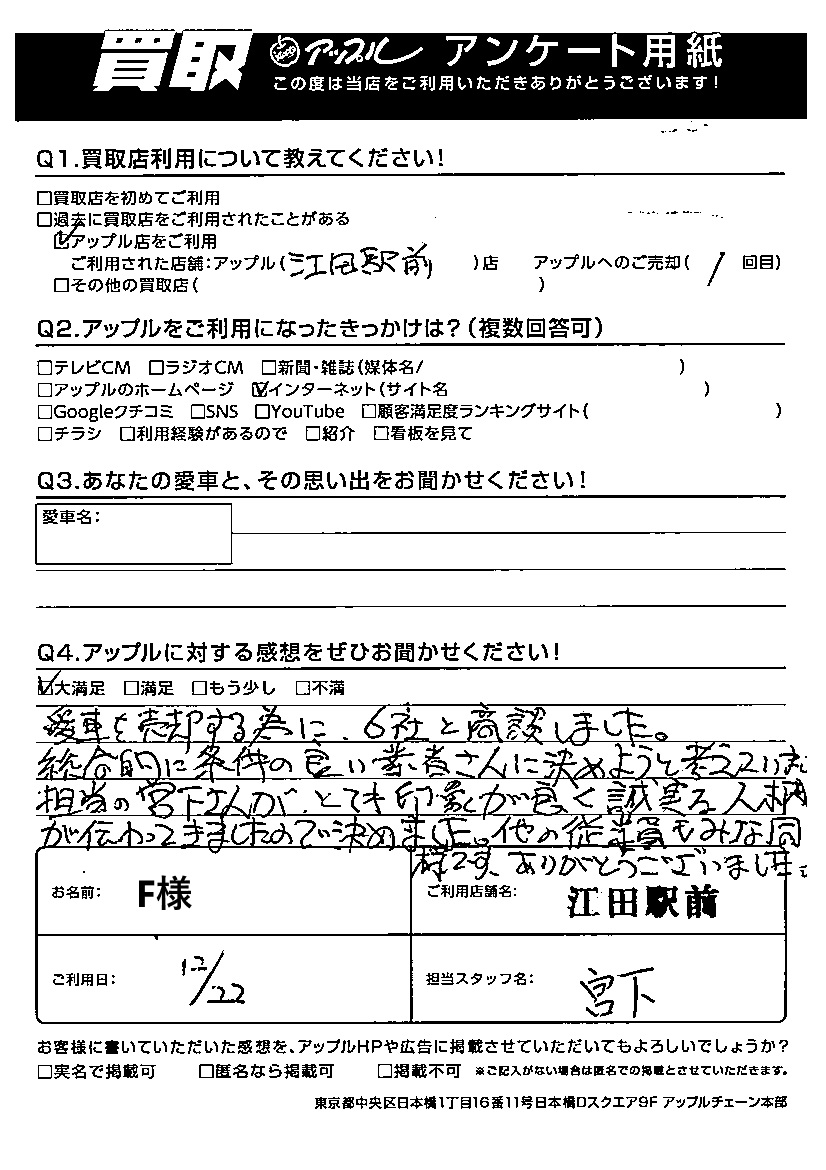 買取 アップル アンケート用紙
この度は当店をご利用いただきありがとうございます!
Q1.買取店利用について教えてください!
□買取店を初めてご利用
□過去に買取店をご利用されたことがある
☑アップル店をご利用
ご利用された店舗:アップル(江田駅前)店 アップルへのご売却(1回目)
□その他の買取店( )
Q2.アップルをご利用になったきっかけは?(複数回答可)
□テレビCM □ラジオCM □新聞・雑誌(媒体名/ )
□アップルのホームページ ☑インターネット(サイト名 )
□Googleクチコミ □SNS □YouTube □顧客満足度ランキングサイト( )
□チラシ □利用経験があるので □紹介 □看板を見て
Q3.あなたの愛車と、その思い出をお聞かせください!
愛車名:
Q4.アップルに対する感想をぜひお聞かせください!
☑大満足 □満足 □もう少し □不満
愛車を売却する為に、6社と商談しました。
総合的に条件の良い業者さんに決めようと考えていた
担当の宮下さんが、とても印象が良く誠実な人柄
が伝わってきましたので決めました。他の従業員もみな同
様です、ありがとうございました。
お名前: F様 ご利用店舗名: 江田駅前
ご利用日: 12/22 担当スタッフ名: 宮下
お客様に書いていただいた感想を、アップルHPや広告に掲載させていただいてもよろしいでしょうか?
□実名で掲載可 □匿名なら掲載可 □掲載不可 ※ご記入がない場合は匿名での掲載とさせていただきます。
東京都中央区日本橋1丁目16番11号日本橋Dスクエア9F アップルチェーン本部